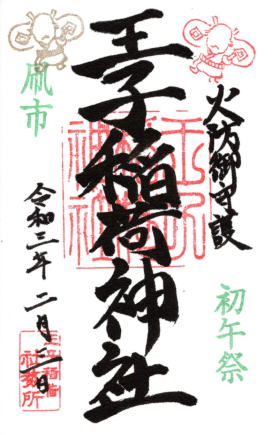 火防御守護
初午祭
王子稲荷神社
凧市
令和三年二月三日
王子稲荷
社務所